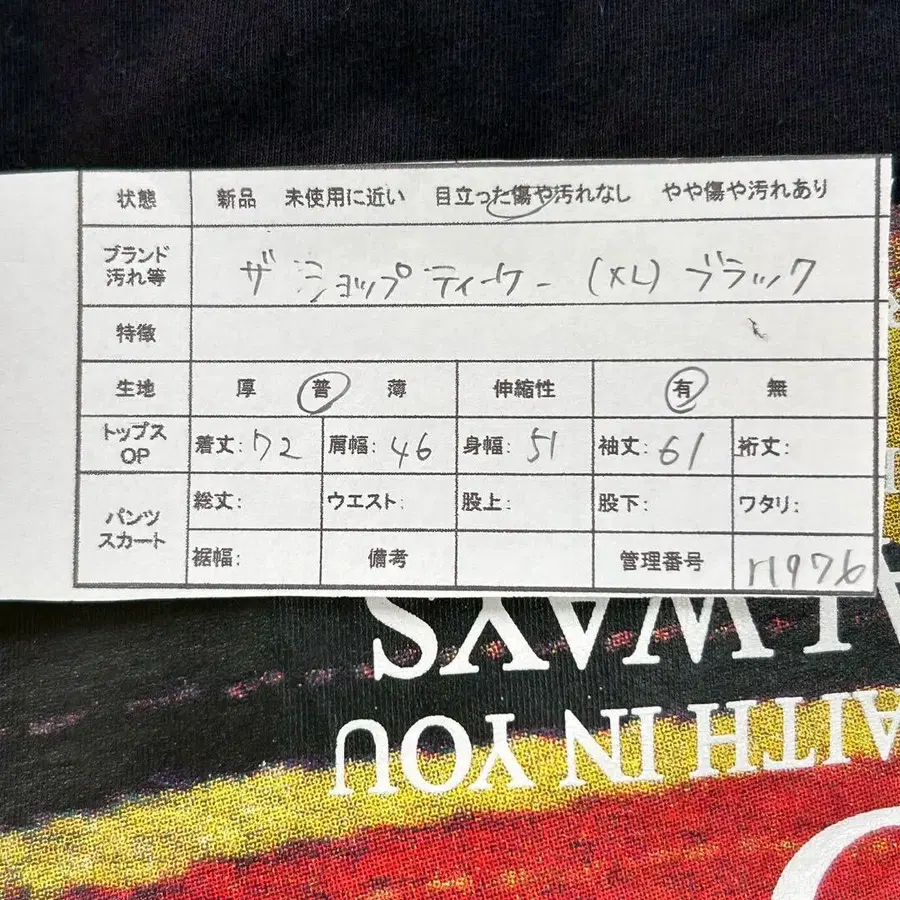 状態 新品 未使用に近い 目立った傷や汚れなし やや傷や汚れあり
ブランド
汚れ等 ザ ショップ ティーケー (XL) ブラック
特徴
生地 厚 普 薄 伸縮性 有 無
トップス
OP 着丈: 72 肩幅: 46 身幅: 51 袖丈: 61 裄丈:
パンツ
スカート 総丈: ウエスト: 股上: 股下: ワタリ:
裾幅: 備考 管理番号 r1976
ALWAYS
AITH IN YOU